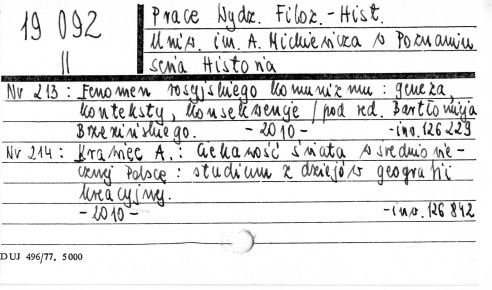 19 092
II
Prace Wydz. Filoz.-Hist.
Uniw. im. A. Mickiewicza w Poznaniu
seria Historia
Nr 213: Fenomen rosyjskiego komunizmu: geneza,
konteksty, konsekwencje / pod red. Bartłomieja
Brzezińskiego. - 2010 - -inw. 126 229
Nr 214: Krawiec A.: Ciekawość świata w średniowie-
cznej Polsce: studium z dziejów geografii
kreacyjnej.
- 2010 - -inw. 126 842
DUJ 496/77. 5000